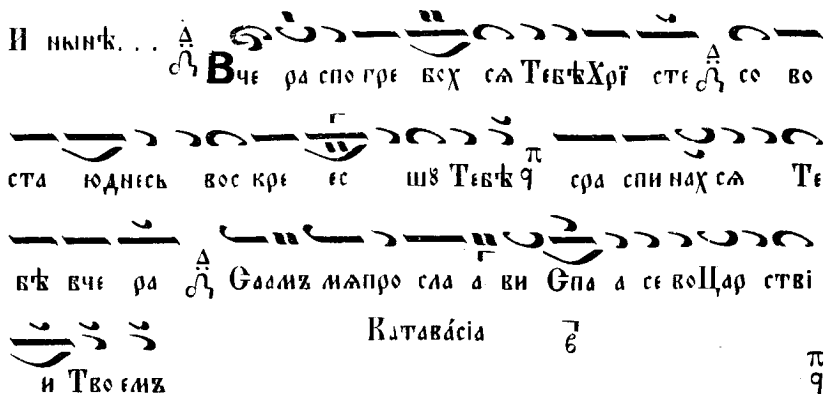 И нынѣ... Д Вче ра спо гре бсх сѧ Тебѣ Хрї сте Д со во
ста юднесь вос кре ес шꙋ Тебѣ π q сра спи нах сѧ Те
бѣ вче ра Д Саамъ мѧпро сла а ви Спа а се воЦар ствї
и Твоемъ Катава́сіа π q